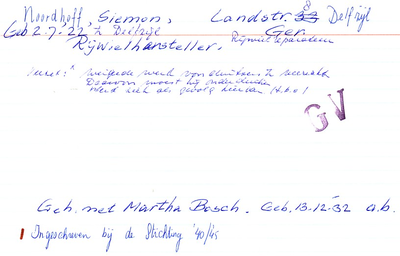 Noordhoff, Siemon, Landstr. 38 Delfzijl
Geb 2.7.22 te Delfzijl Ger.
Rijwielhersteller. Rijwielreparateur
weigerde werk van duitsers te
Daarvoor moest hij onderduiken
werd ook als gevolg hiervan
GV
Geh. met Martha Bosch. Geb. 13-12-32 a.b.
Ingeschreven bij de Stichting '40/45